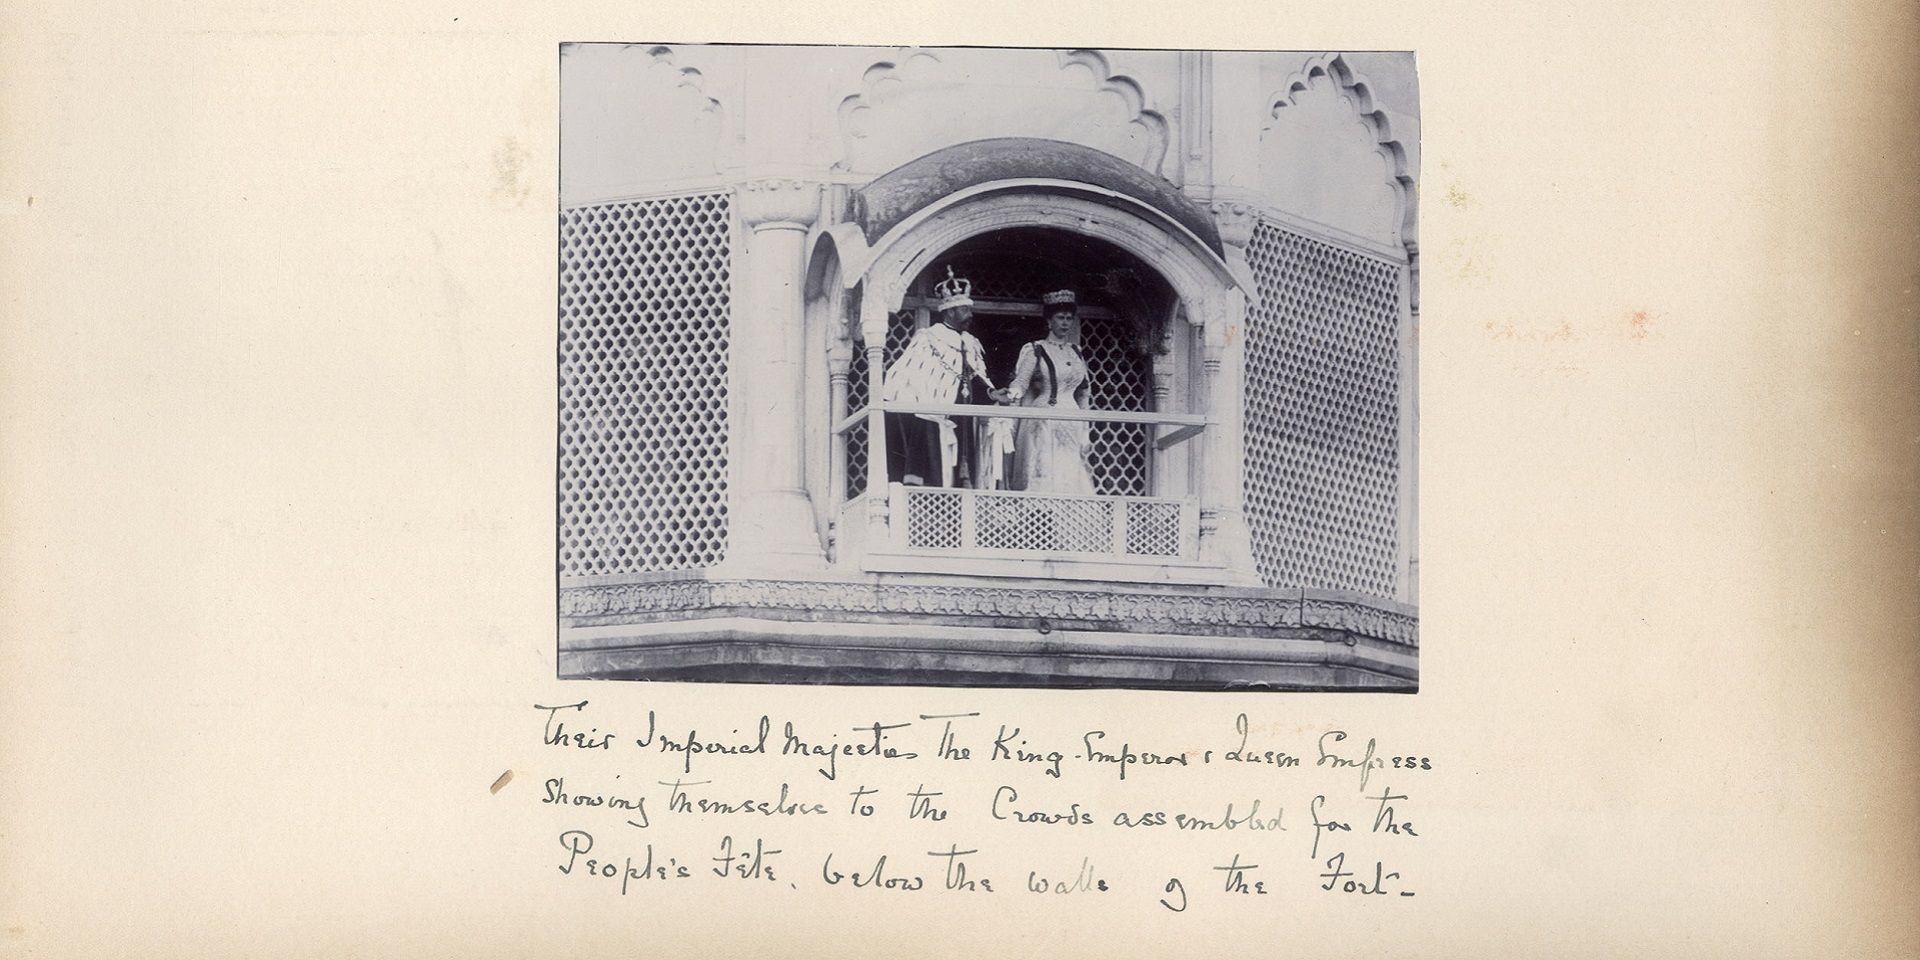 Their Imperial Majesties The King-Emperor & Queen Empress
showing themselves to the Crowds assembled for the
People's Fête, below the walls of the Fort-